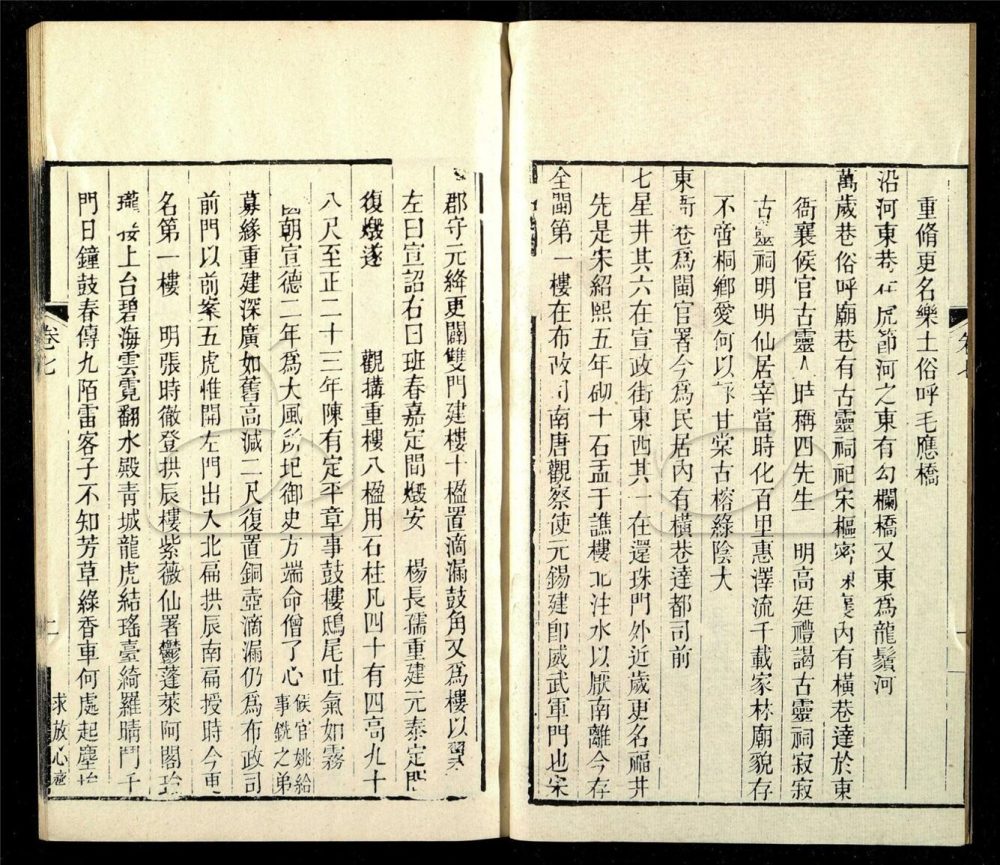 重脩更名樂土俗呼毛應橋
沿河東巷 虎節河之東有勾欄橋又東爲龍鬚河
萬歲巷俗呼廟巷有古靈祠祀宋樞密 襄內有橫巷達於東
衙襄候官古靈人時稱四先生 明高廷禮謁古靈祠寂寂
古靈祠明明仙居宰當時化百里惠澤流千載家林廟貌存
不啻桐鄉愛何以 甘棠古榕綠陰大
東 巷爲閩官署今爲民居內有橫巷達都司前
七星井其六在宣政街東西其一在還珠門外近歲更名福井
先是宋紹熙五年砌十石盂于譙樓北注水以厭南離今存
全閩第一樓在布政司南唐觀察使元錫建卽威武軍門也宋
郡守元絳更闢雙門建樓十楹置滴漏鼓角又爲樓以翼
左曰宣詔右曰班春嘉定間燬安 楊長孺重建元泰定間
復燬遂 觀搆重樓八楹用石柱凡四十有四高九十
八尺至正二十三年陳有定平章事鼓樓鴟尾吐氣如霧
國朝宣德二年爲大風所圮御史方端命僧了心候官姚給事銑之弟
募緣重建深廣如舊高減二尺復置銅壺滴漏仍爲布政司
前門以前案五虎惟開左門出入北扁拱辰南扁授時今更
名第一樓 明張時徹登拱辰樓紫薇仙署鬱蓬萊阿閣
瓏 上台碧海雲霓翻水殿靑城龍虎結瑤臺綺羅晴鬥千
門日鐘鼓春傳九陌雷客子不知芳草綠香車何處起塵
卷七
二
求放心齋